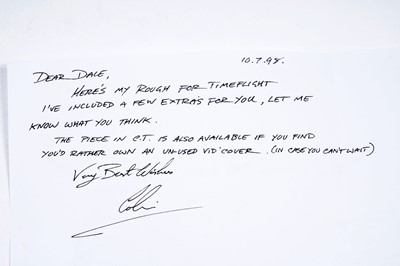 10.7.98.
DEAR DALE,
HERE'S MY ROUGH FOR TIMEFLIGHT
I'VE INCLUDED A FEW EXTRA'S FOR YOU, LET ME
KNOW WHAT YOU THINK.
THE PIECE IN C.T. IS ALSO AVAILABLE IF YOU FIND
YOU'D RATHER OWN AN UN-USED VID' COVER. (IN CASE YOU CAN'T WAIT)
Very Best Wishes
Colin